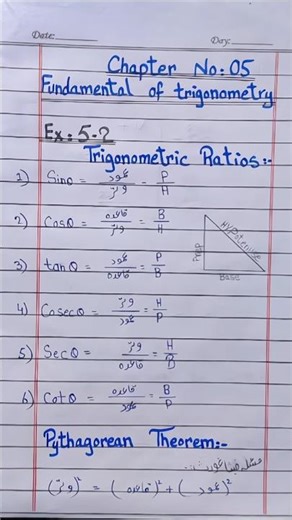 Date: Day:
Chapter No: 05
Fundamental of trigonometry
Ex: 5.2
Trigonometric Ratios:-
1) Sinθ = عمود/وتر = P/H
2) Cosθ = قاعدہ/وتر = B/H
3) tanθ = عمود/قاعدہ = P/B
Perp Hypotenuse Base
4) Cosecθ = وتر/عمود = H/P
5) Secθ = وتر/قاعدہ = H/B
6) Cotθ = قاعدہ/عمود = B/P
Pythagorean Theorem:-
مسئلہ فیثا غورث
(وتر)² = (قاعدہ)² + (عمود)²